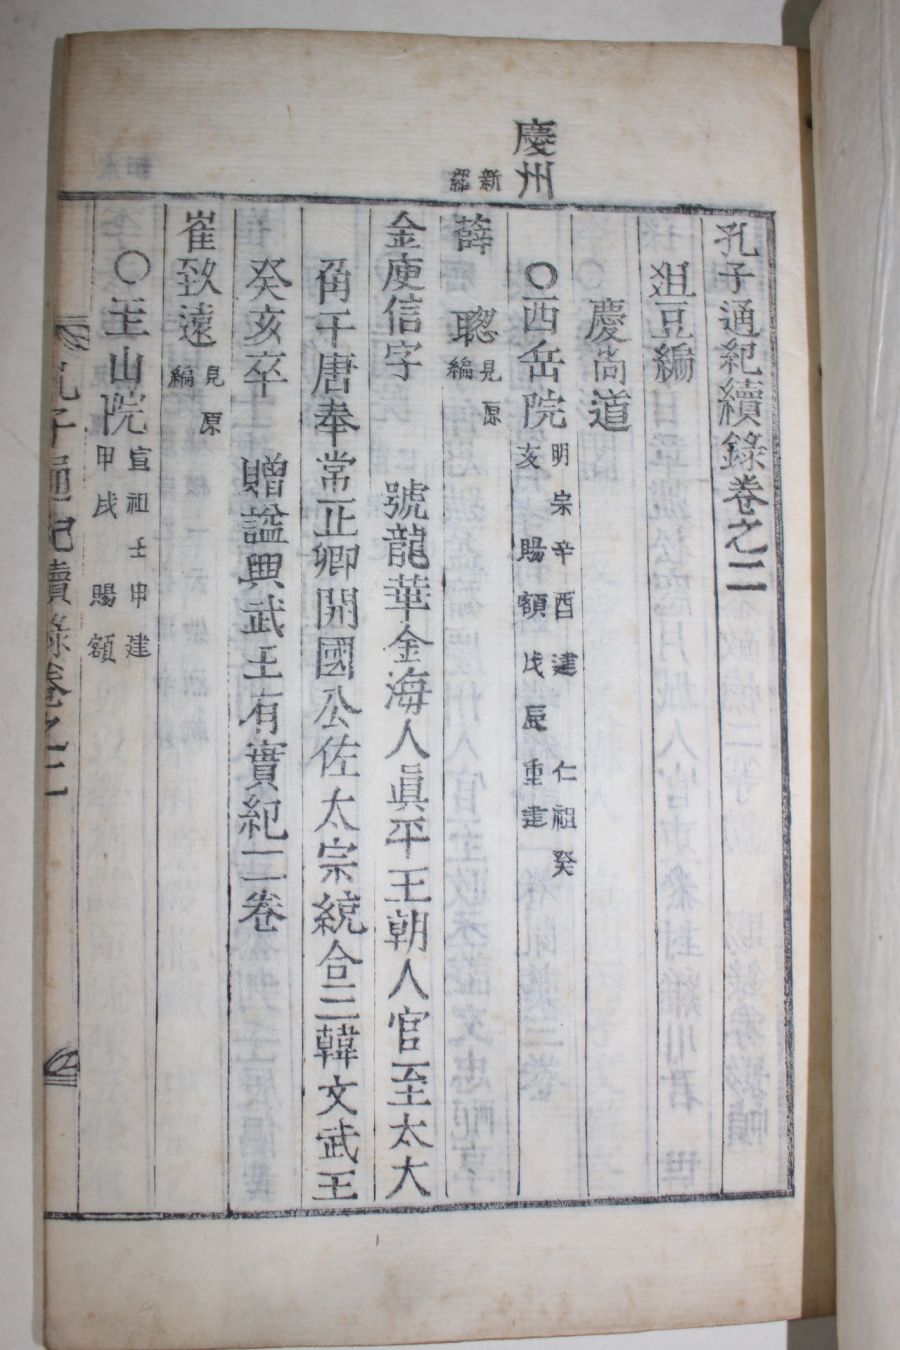 慶州
新羅
孔子通紀續錄卷之二
俎豆編
慶尙道
○西岳院 明宗辛酉建 仁祖癸亥賜額戊辰重建
薛 聰 見原編
金庾信字 號龍華金海人眞平王朝人官至太大
角干唐奉常正卿開國公佐太宗統合三韓文武王
癸亥卒 贈諡興武王有實紀二卷
崔致遠 見原編
○主山院 宣祖壬申建甲戌賜額
孔子通紀續錄卷之二